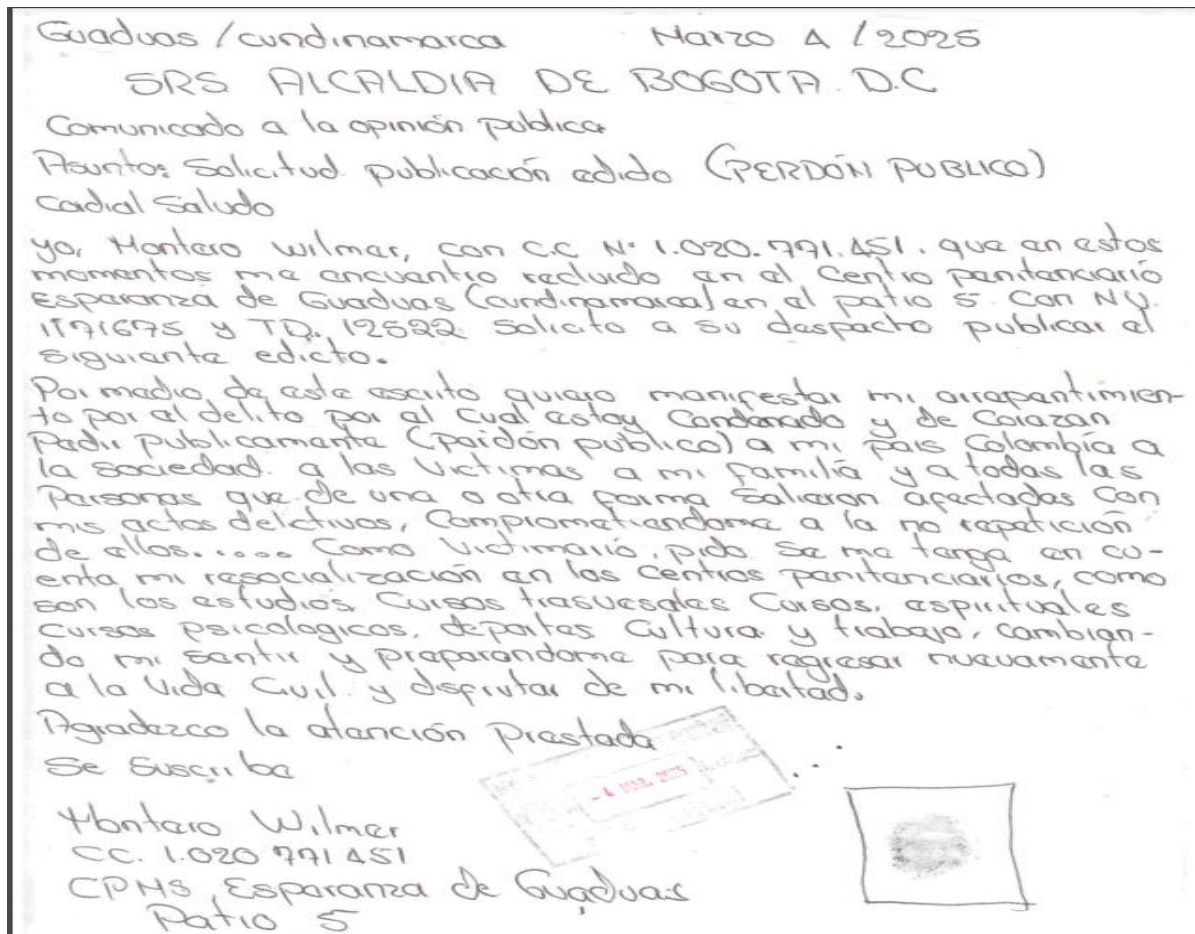 Guaduas / cundinamarca Marzo 4 / 2025
SRS ALCALDIA DE BOGOTA. D.C
Comunicado a la opinión publica
Asunto: Solicitud publicación edido (PERDÓN PUBLICO)
Cordial Saludo
yo, Montero Wilmer, con C.C Nº 1.020.791.451. que en estos
momentos me encuentro recluido en el Centro penitenciario
Esperanza de Guaduas (cundinamarca) en el patio 5 Con NU.
1171675 y TD. 12522 Solicito a su despacto publicar el
siguiente edicto.
Por medio de este escrito quiero manifestar mi arrepentimien-
to por el delito por el Cual estoy Condenado y de Corazan
Pedir publicamente (perdón publico) a mi pais Colombia a
la sociedad. a las victimas a mi familia y a todas las
Personas que de una o otra forma Salieron afectadas Con
mis actos delctivos, Comprometiendome a la no repetición
de ellos..... Como Victimario, pido Se me tenga en cu-
enta mi resocialización en los Centros penitenciarios, como
son los estudios, Cursos trasvesales Cursos. espirituales
Cursos psicologicos. deportes Cultura y trabajo, cambian-
do mi sentir y preparandome para regresar nuevamente
a la Vida Civil y disfrutar de mi libertad.
Agradezco la atención Prestada
Se Suscribe
- 4 MAR. 2025
Montero Wilmer
CC. 1.020 791 451
CPMS Esperanza de Guaduas
Patio 5